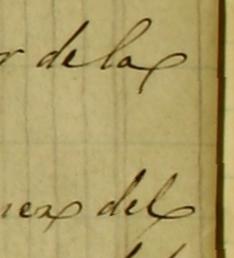 r de la
nez del